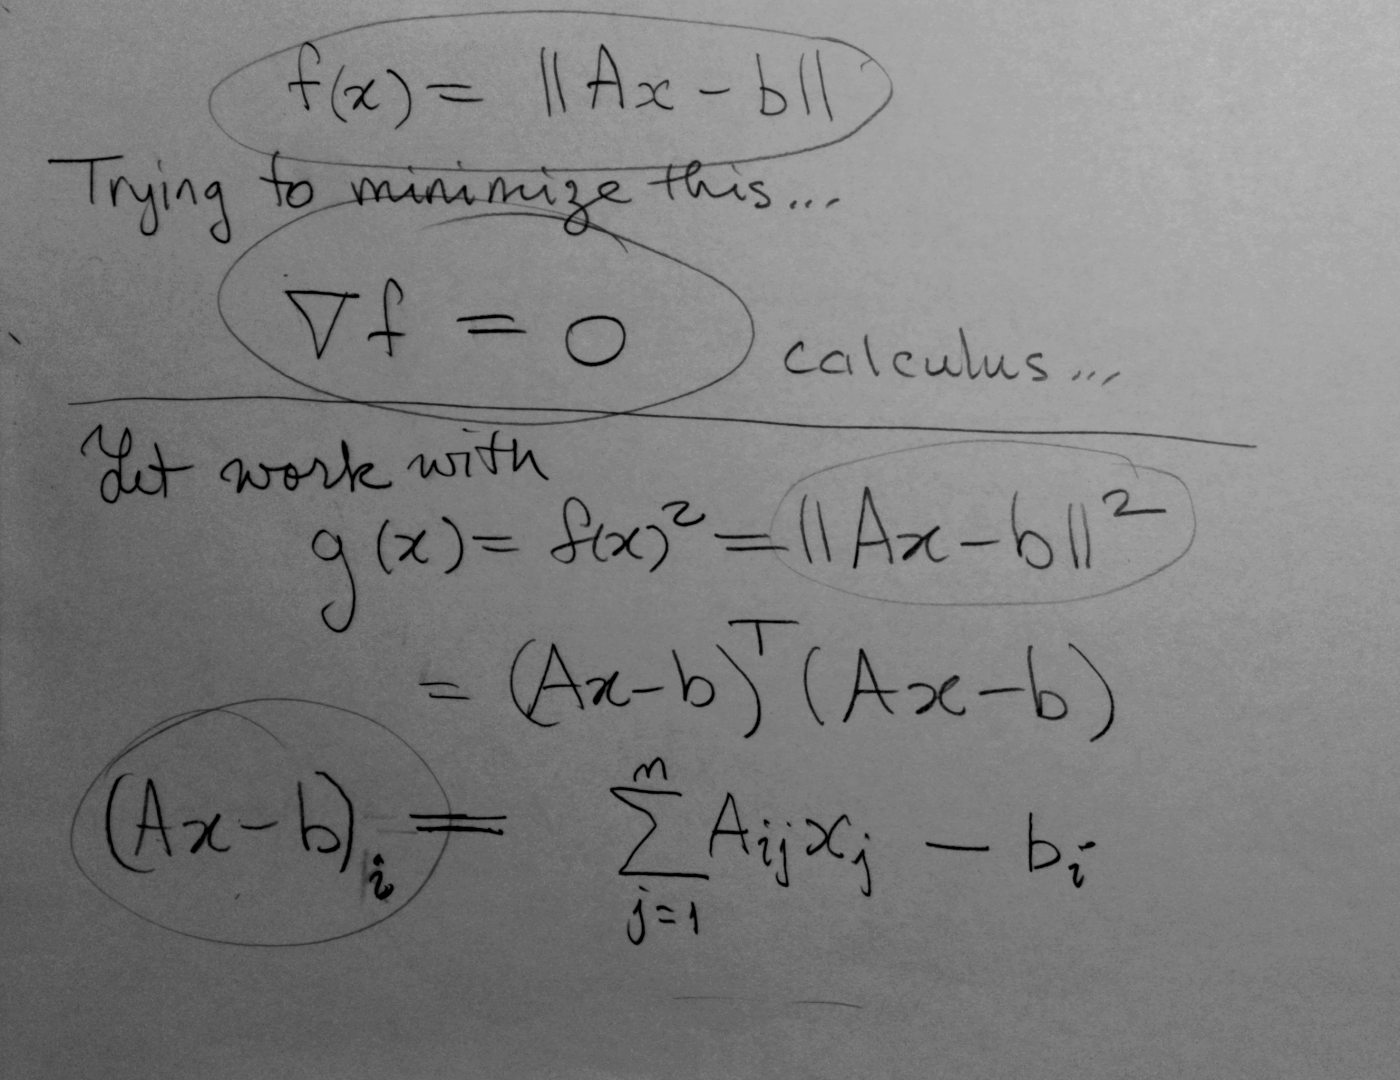 f(x) = ||Ax - b||
Trying to minimize this...
∇f = 0
calculus...
Let work with
g(x) = f(x)² = ||Ax - b||²
= (Ax - b)ᵀ(Ax - b)
(Ax - b)ᵢ = ∑ⁿⱼ₌₁ Aᵢⱼxⱼ - bᵢ